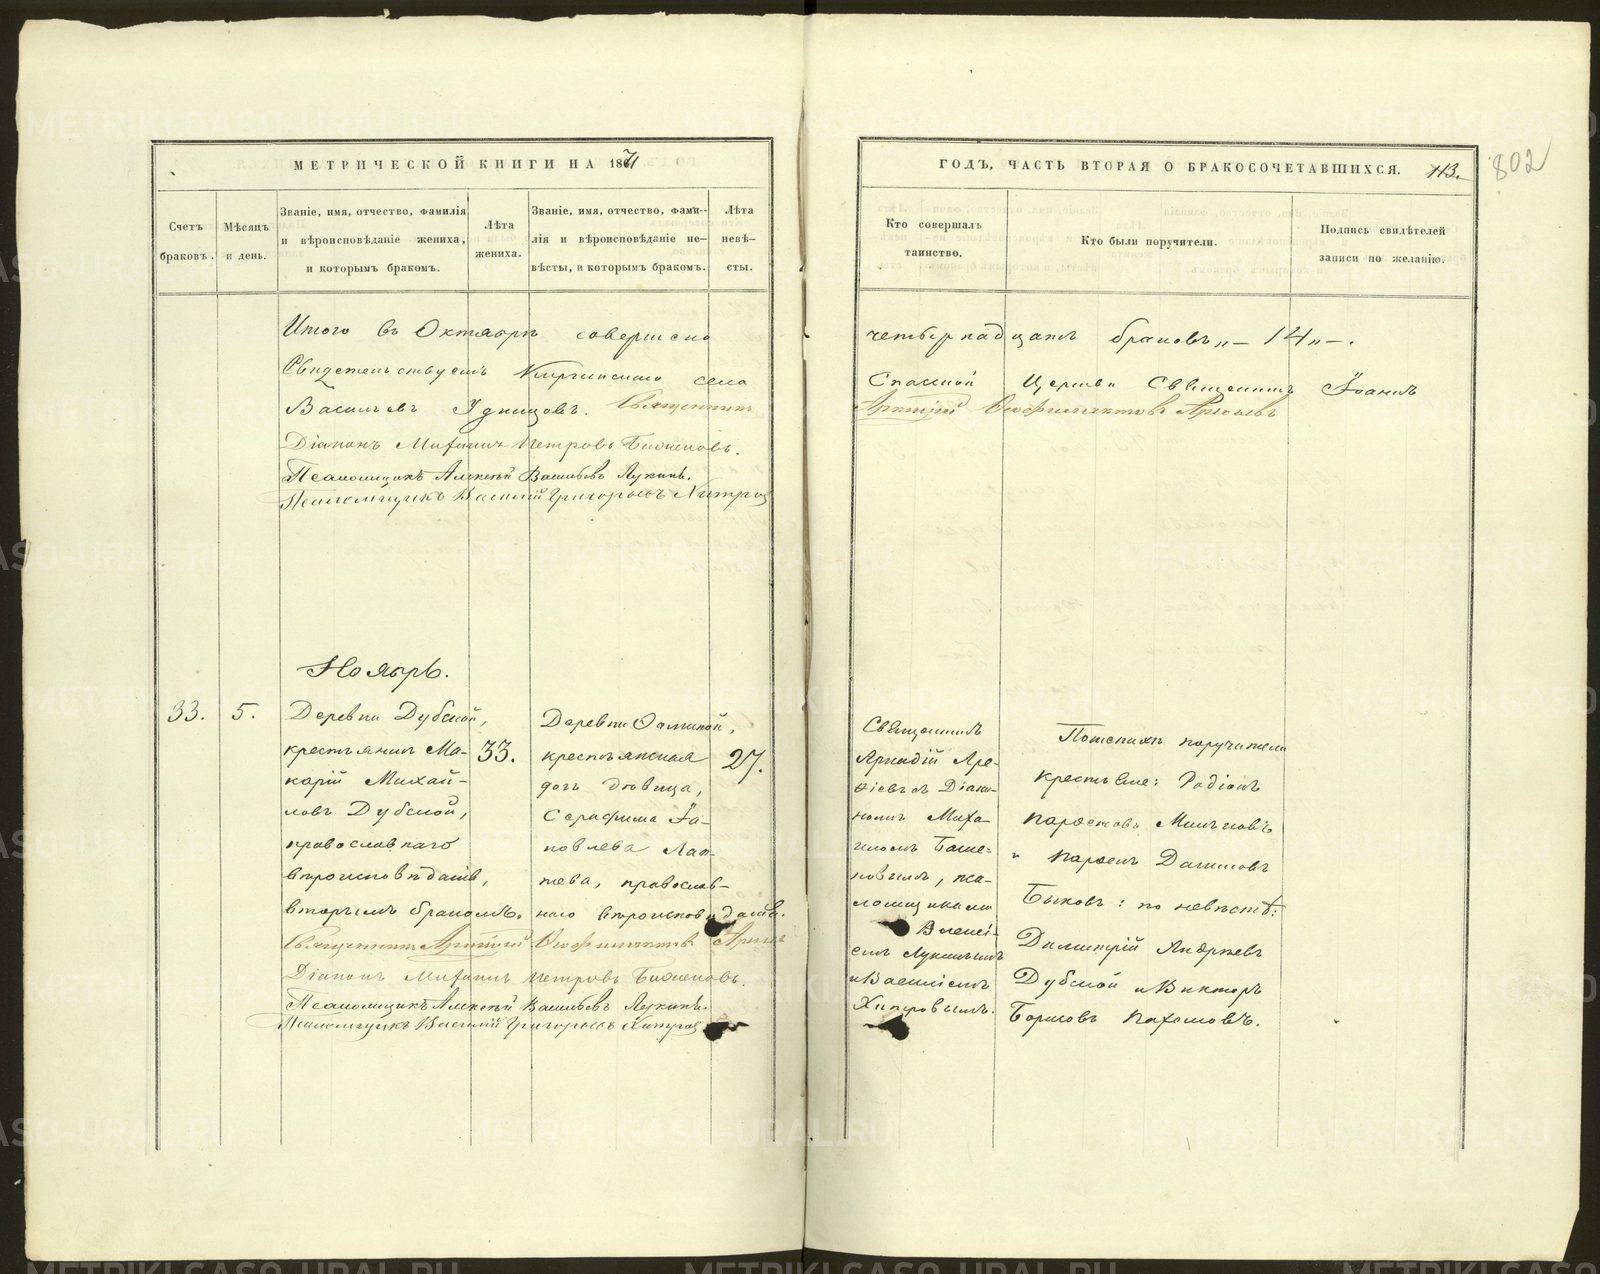 МЕТРИЧЕСКОЙ КНИГИ НА 1871
Счетъ браковъ.
Мѣсяцъ и день.
Званіе, имя, отчество, фамилія
и вѣроисповѣданіе жениха,
и которымъ бракомъ.
Лѣта
жениха.
Званіе, имя, отчество, фами-
лія и вѣроисповѣданіе не-
вѣсты, и которымъ бракомъ.
Лѣта
невѣ-
сты.
Итого въ Октябрѣ совершено
Свидетельствуемъ Киргинскаго села
Васильевъ Удинцовъ. Священникъ
Діаконъ Михаилъ Петровъ Баженовъ.
Псаломщикъ Алексѣй Васильевъ Лукинъ.
Псаломщикъ Василій Григорьевъ Хитров
Ноябрь.
33. 5.
Деревни Дубской,
крестьянинъ Ма-
карій Михай-
ловъ Дубской,
православнаго
вѣроисповѣданія,
вторымъ бракомъ.
33.
Деревни
крестьянская
дочь дѣвица,
Серафима Іа-
ковлева Лап-
тева, православ-
наго вѣроисповѣданія.
27.
Священникъ
Діаконъ Михаилъ Петровъ Баженовъ.
Псаломщикъ Алексѣй Васильевъ Лукинъ.
Псаломщикъ Василій Григорьевъ Хитров
ГОДЪ, ЧАСТЬ ВТОРАЯ О БРАКОСОЧЕТАВШИХСЯ. 113.
802
Кто совершалъ
таинство.
Кто были поручители.
Подпись свидѣтелей
записи по желанію.
четырнадцать браковъ „— 14 „—.
Спасской Церкви Священникъ Іоаннъ
Священникъ
Аркадій Аре-
ѳіевъ съ Діако-
номъ Миха-
иломъ Баже-
новымъ, пса-
ломщиками
Алексѣ-
емъ Лукинымъ
и Василіемъ
Хитровымъ.
По женихѣ поручители
крестьяне: Родіонъ
и
Быковъ: по невѣстѣ:
Димитрій Андреевъ
Дубской и Викторъ
Борисовъ Пахомовъ.